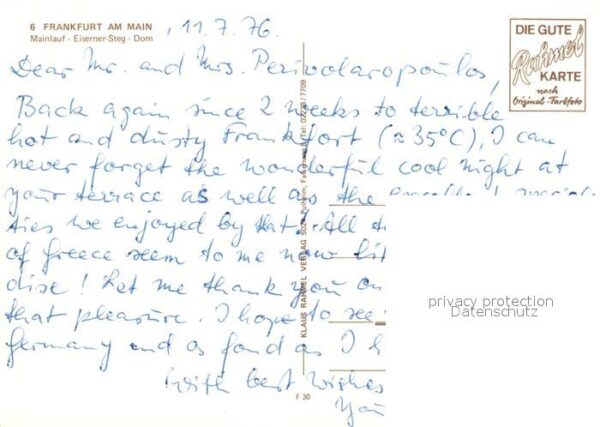 6 FRANKFURT AM MAIN
Mainlauf - Eiserner-Steg - Dom
, 11.7.76.
DIE GUTE
Rahmel
KARTE
nach
Original-Farbfoto
Dear Mr. and Mrs. Perivolaropoulos,
Back again since 2 weeks to terrible
hot and dusty Frankfort (≈35°C), I can
never forget the wonderful cool night at
your terrace as well as the
ties we enjoyed by that. All
of Greece seem to me now
dise! Let me thank you on
that pleasure. I hope to see
Germany and as fond as I
with best wishes
You
KLAUS RAHMEL VERLAG 5024 Pulheim,
F 30
privacy protection
Datenschutz